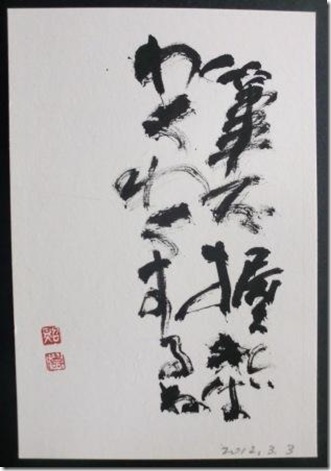 筆を握れば
わくわくするね
2012.3.3